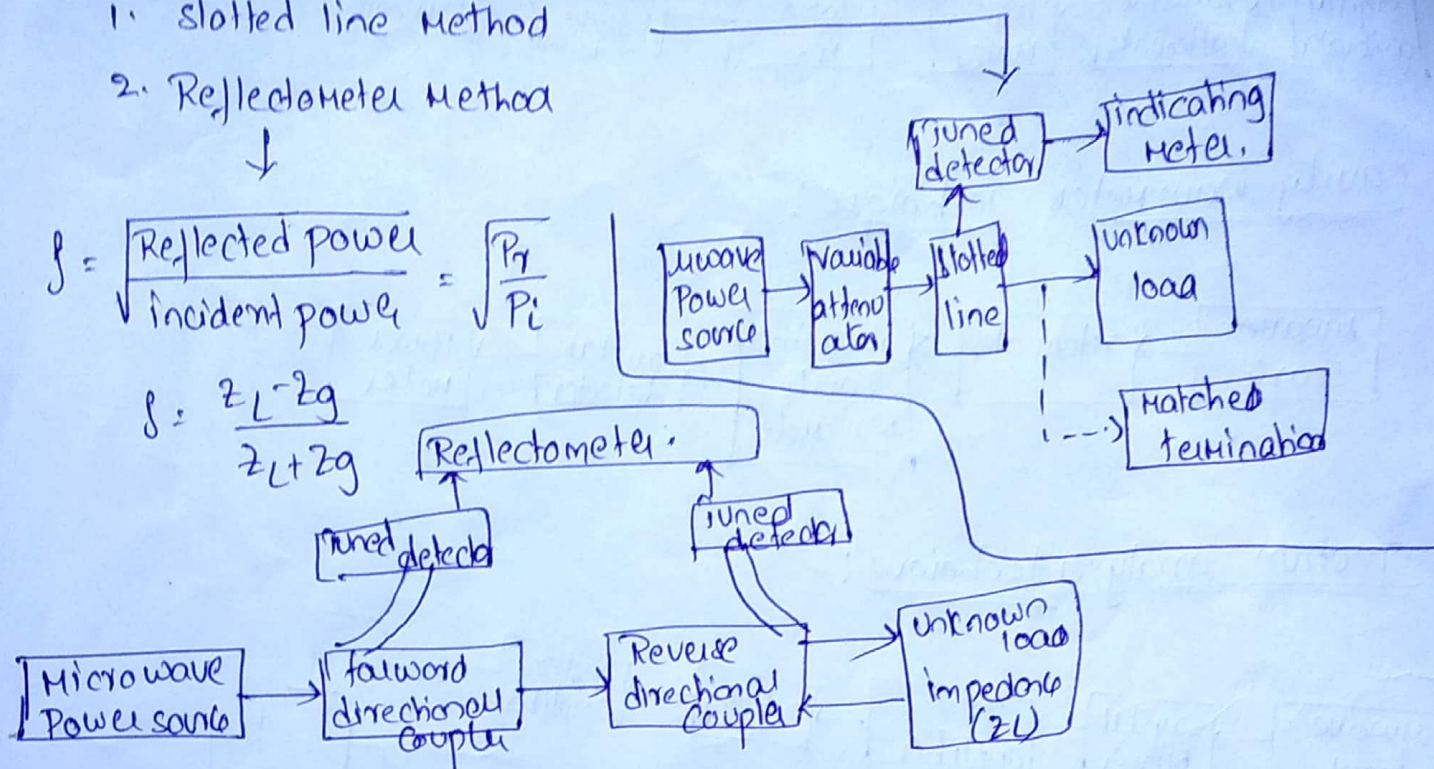 1. Slotted line Method
2. Reflectometer Method
ρ = √(Reflected power / incident power) = √(Pr / Pi)
ρ = (ZL - Zg) / (ZL + Zg)
Tuned
detector
indicating
Meter.
μwave
Power
source
Variable
attenu
ator
Slotted
line
unknown
load
Matched
termination
Reflectometer.
Tuned detector
Tuned
detector
Microwave
Power source
forword
directional
Coupler
Reverse
directional
Coupler
unknown
load
impedance
(ZL)